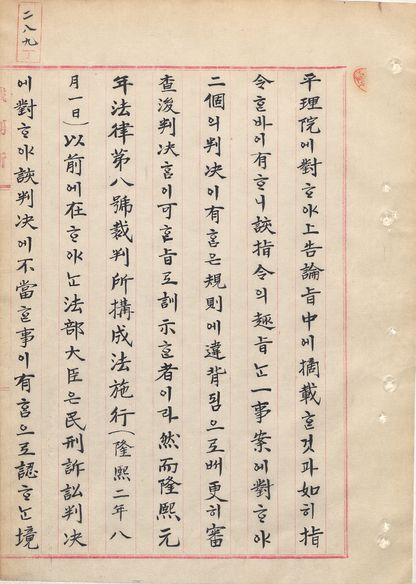 二八九丁
平理院에對ᄒᆞ야上告論旨中에摘載ᄒᆞᆫ것과如히指
令ᄒᆞᆫ바이有ᄒᆞ니該指令의趣旨ᄂᆞᆫ一事案에對ᄒᆞ야
二個의判决이有ᄒᆞᆷ은規則에違背됨으로ᄡᅥ更히審
查後判决ᄒᆞᆷ이可ᄒᆞᆫ旨로訓示ᄒᆞᆫ者이라然而隆熙元
年法律第八號裁判所構成法施行(隆熙二年八
月一日)以前에在ᄒᆞ야ᄂᆞᆫ法部大臣은民刑訴訟判决
에對ᄒᆞ야該判决에不當ᄒᆞᆫ事이有ᄒᆞᆷ으로認ᄒᆞᄂᆞᆫ境